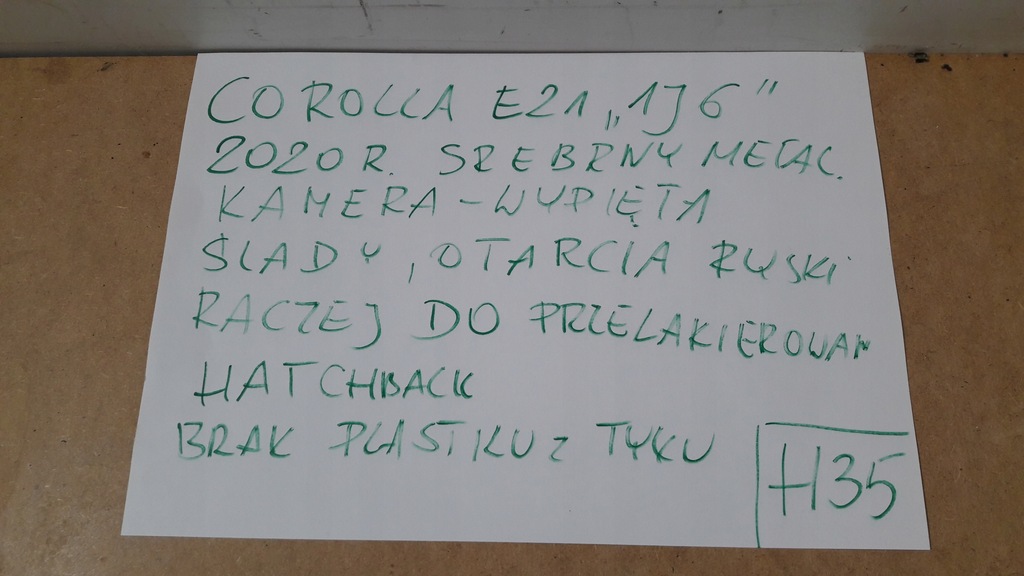 COROLLA E21 „1J6"
2020R. SREBRNY METAL.
KAMERA - WYPIĘTA
ŚLADY, OTARCIA RYSKI
RACZEJ DO PRZELAKIEROWAN
HATCHBACK
BRAK PLASTIKU Z TYKU
H35